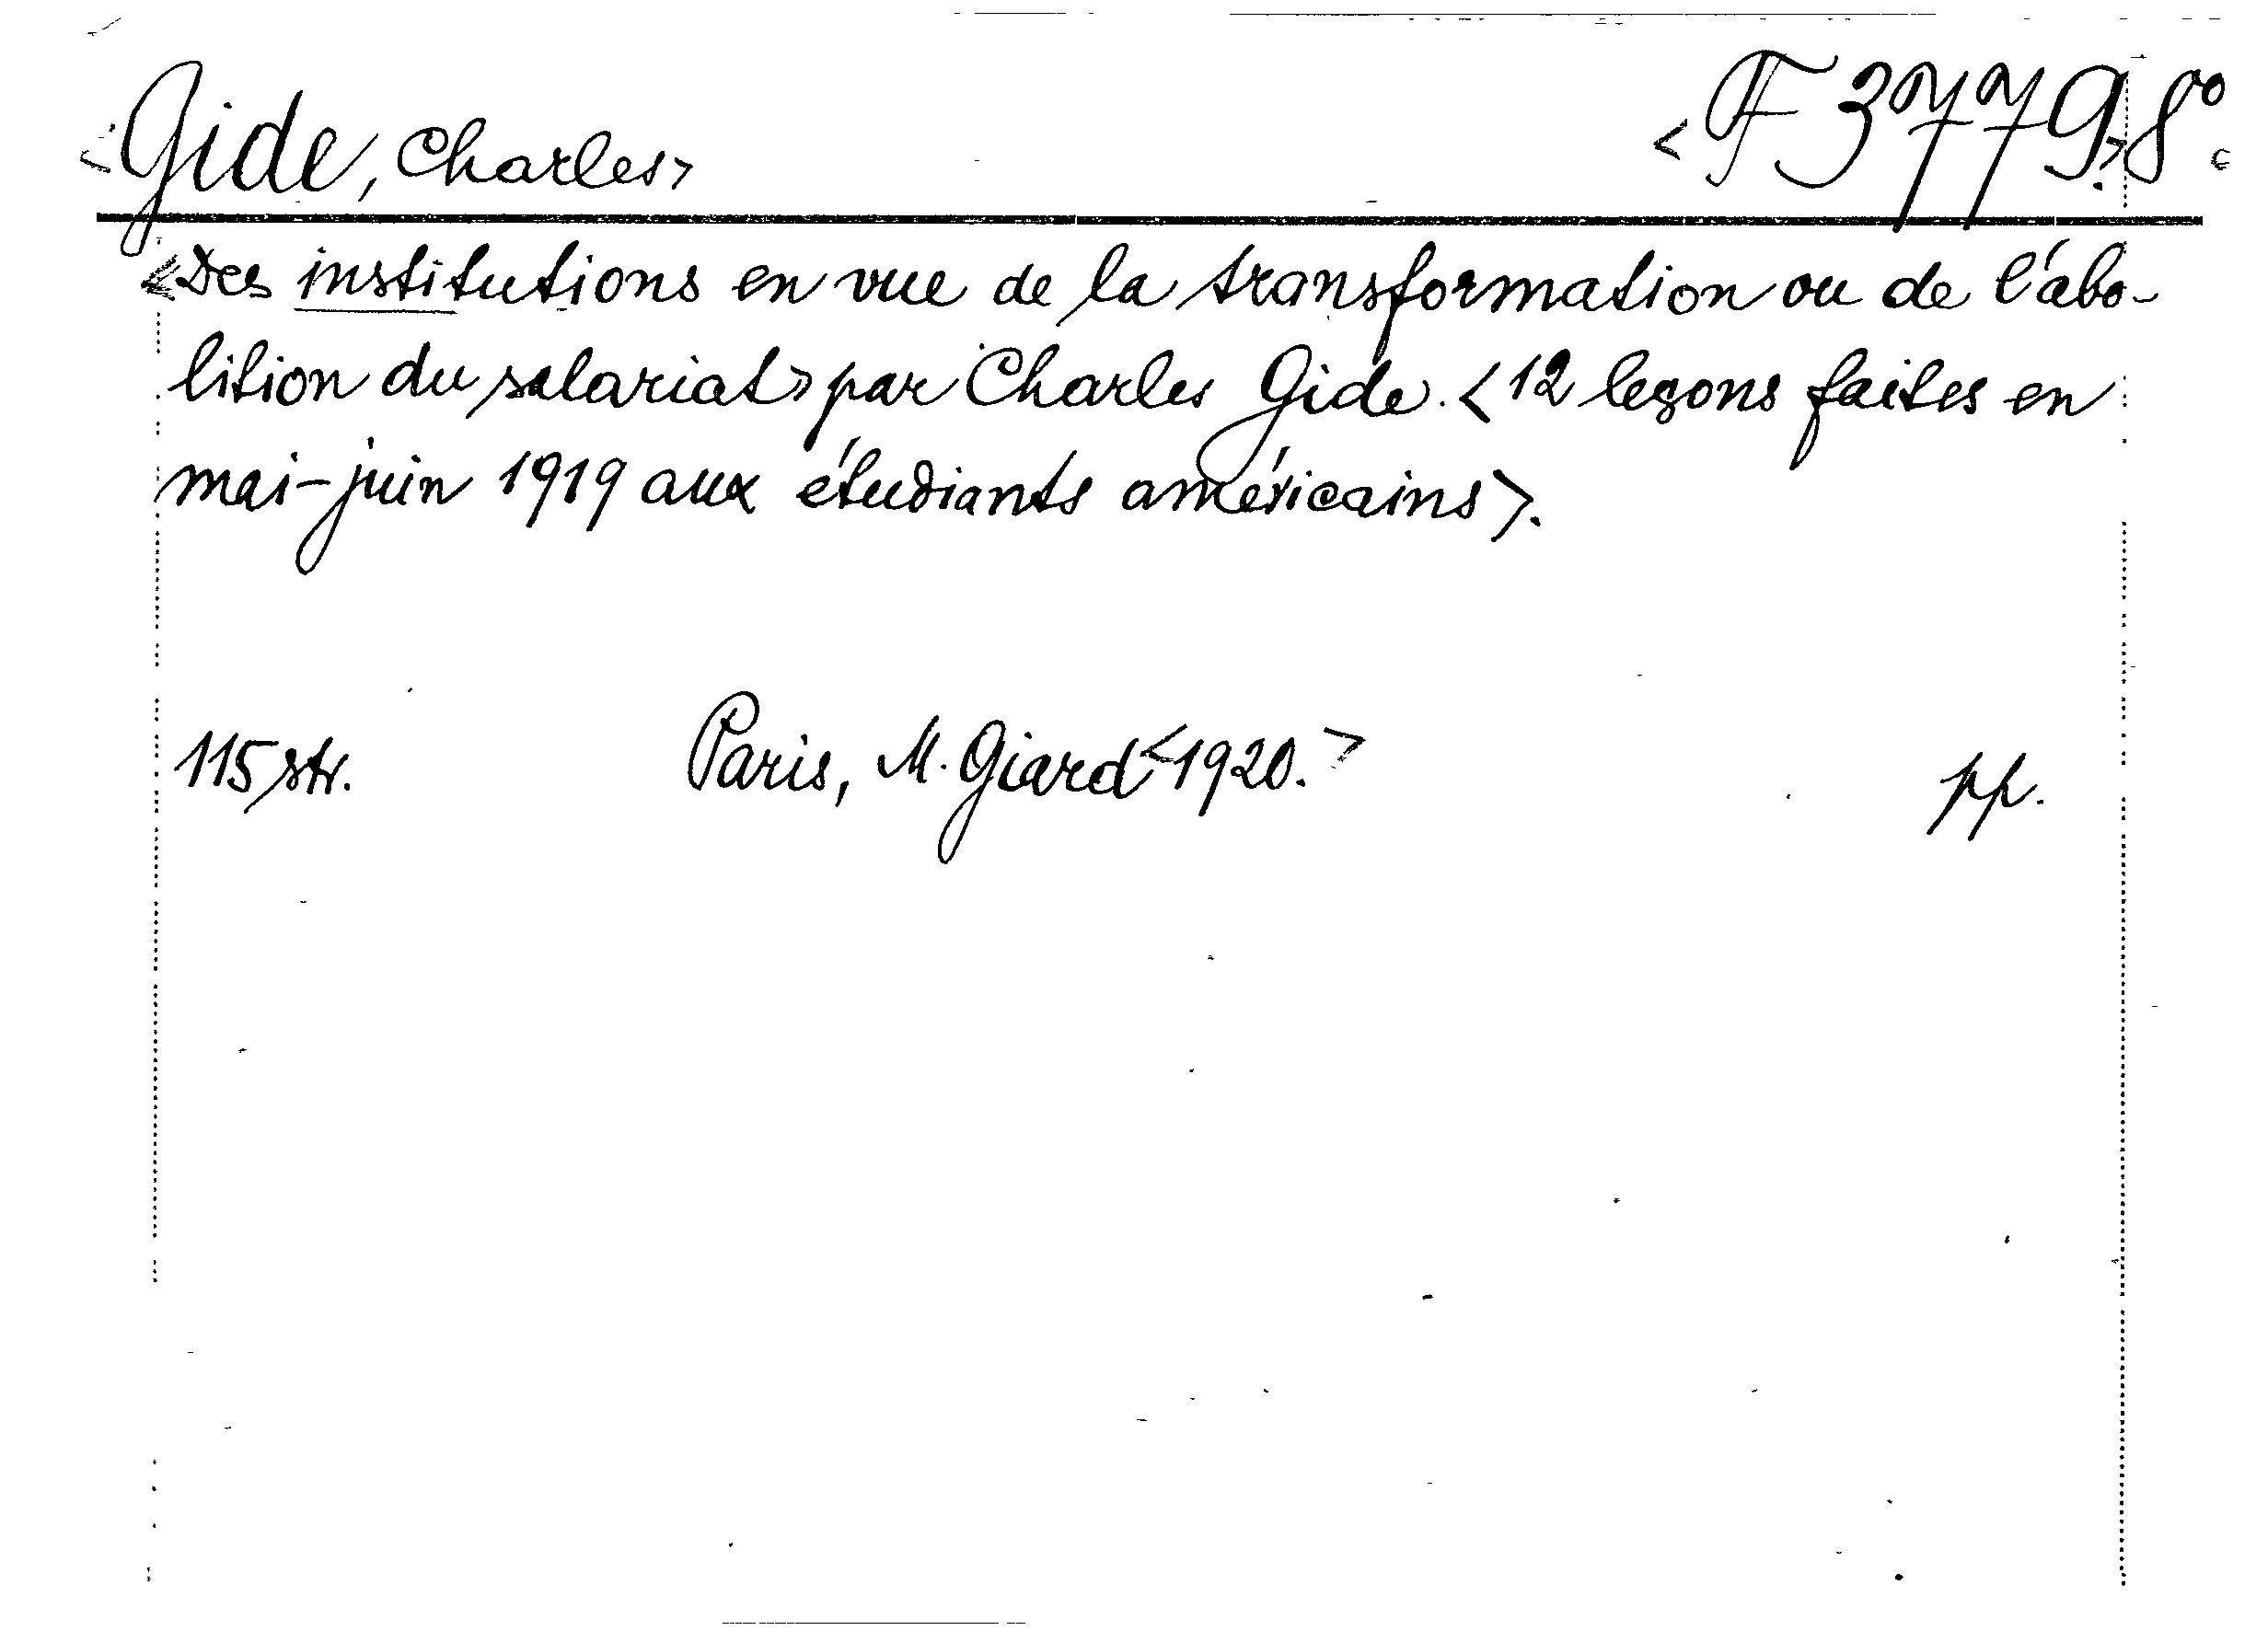 <Gide, Charles> <F 3779.> 8°
<Des institutions en vue de la transformation ou de l'abo-
lition du salariat> par Charles Gide. <12 leçons faites en
mai-juin 1919 aux étudiants américains>.
115 str. Paris, M. Giard <1920.> pp.